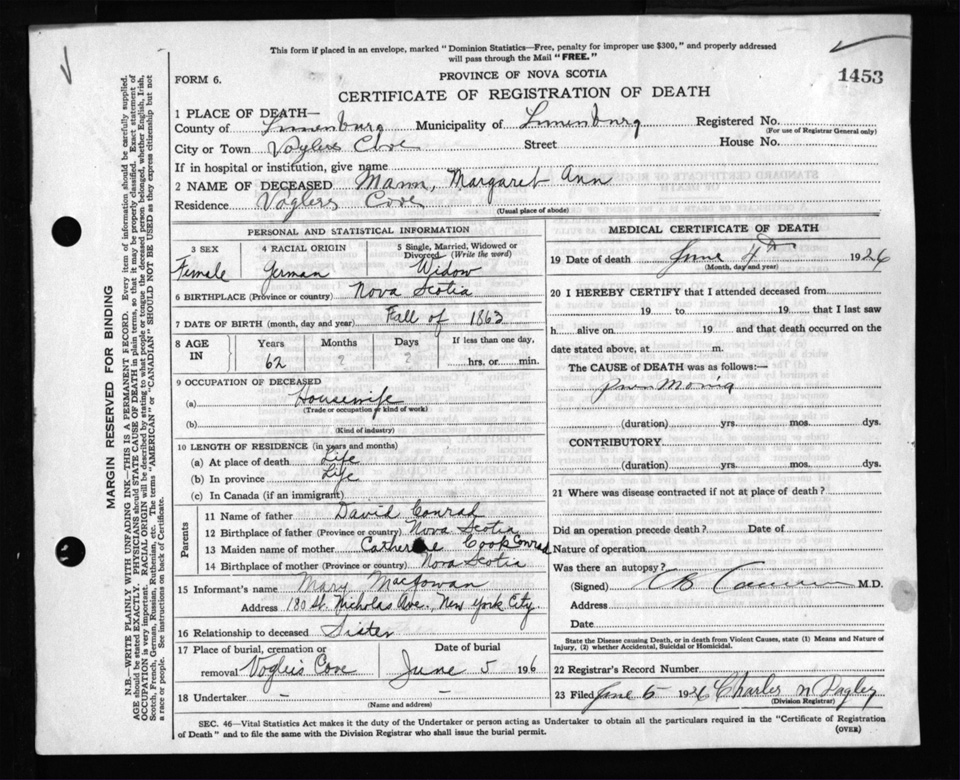 This form if placed in an envelope, marked "Dominion Statistics—Free, penalty for improper use $300," and properly addressed
will pass through the Mail "FREE."
FORM 6.
PROVINCE OF NOVA SCOTIA
1453
CERTIFICATE OF REGISTRATION OF DEATH
1 PLACE OF DEATH—
County of Lunenburg Municipality of Lunenburg Registered No.
(For use of Registrar General only)
City or Town Voglers Cove Street House No.
If in hospital or institution, give name
2 NAME OF DECEASED Mann, Margaret Ann
Residence Voglers Cove
(Usual place of abode)
PERSONAL AND STATISTICAL INFORMATION
3 SEX 4 RACIAL ORIGIN 5 Single, Married, Widowed or Divorced (Write the word)
Female German Widow
6 BIRTHPLACE (Province or country) Nova Scotia
7 DATE OF BIRTH (month, day and year) Fall of 1863
8 AGE IN Years Months Days If less than one day,
62 ? ? hrs. or min.
9 OCCUPATION OF DECEASED
(a) Housewife
(Trade or occupation or kind of work)
(b)
(Kind of industry)
10 LENGTH OF RESIDENCE (in years and months)
(a) At place of death Life
(b) In province Life
(c) In Canada (if an immigrant)
Parents
11 Name of father David Conrad
12 Birthplace of father (Province or country) Nova Scotia
13 Maiden name of mother Catherine Cook Conrad
14 Birthplace of mother (Province or country) Nova Scotia
15 Informant's name Mary MacGowan
Address 180 St. Nicholas Ave., New York City
16 Relationship to deceased Sister
17 Place of burial, cremation or removal Voglers Cove
Date of burial June 5 1926
18 Undertaker – –
(Name and address)
MEDICAL CERTIFICATE OF DEATH
19 Date of death June 4th 1926
(Month, day and year)
20 I HEREBY CERTIFY that I attended deceased from
19 to 19 that I last saw
h alive on 19 and that death occurred on
date stated above, at m.
The CAUSE of DEATH was as follows:—
(duration) yrs. mos. dys.
CONTRIBUTORY
(duration) yrs. mos. dys.
21 Where was disease contracted if not at place of death?
Did an operation precede death? Date of
Nature of operation
Was there an autopsy?
(Signed) M.D.
Address
Date
State the Disease causing Death, or in death from Violent Causes, state (1) Means and Nature of
Injury, (2) whether Accidental, Suicidal or Homicidal.
22 Registrar's Record Number
23 Filed June 5 1926 Charles
(Division Registrar)
SEC. 46—Vital Statistics Act makes it the duty of the Undertaker or person acting as Undertaker to obtain all the particulars required in the "Certificate of Registration
of Death" and to file the same with the Division Registrar who shall issue the burial permit.
(OVER)
MARGIN RESERVED FOR BINDING
N.B.—WRITE PLAINLY WITH UNFADING INK—THIS IS A PERMANENT RECORD. Every item of information should be carefully supplied.
AGE should be stated EXACTLY. PHYSICIANS should STATE CAUSE OF DEATH in plain terms, so that it may be properly classified. Exact statement of
OCCUPATION is very important. RACIAL ORIGIN will be described by stating to what people or tongue the deceased person belonged, whether English, Irish,
Scotch, French, German, Russian, Ruthenian, etc. The terms "AMERICAN" or "CANADIAN" SHOULD NOT BE USED as they express citizenship but not
a race or people. See instructions on back of Certificate.